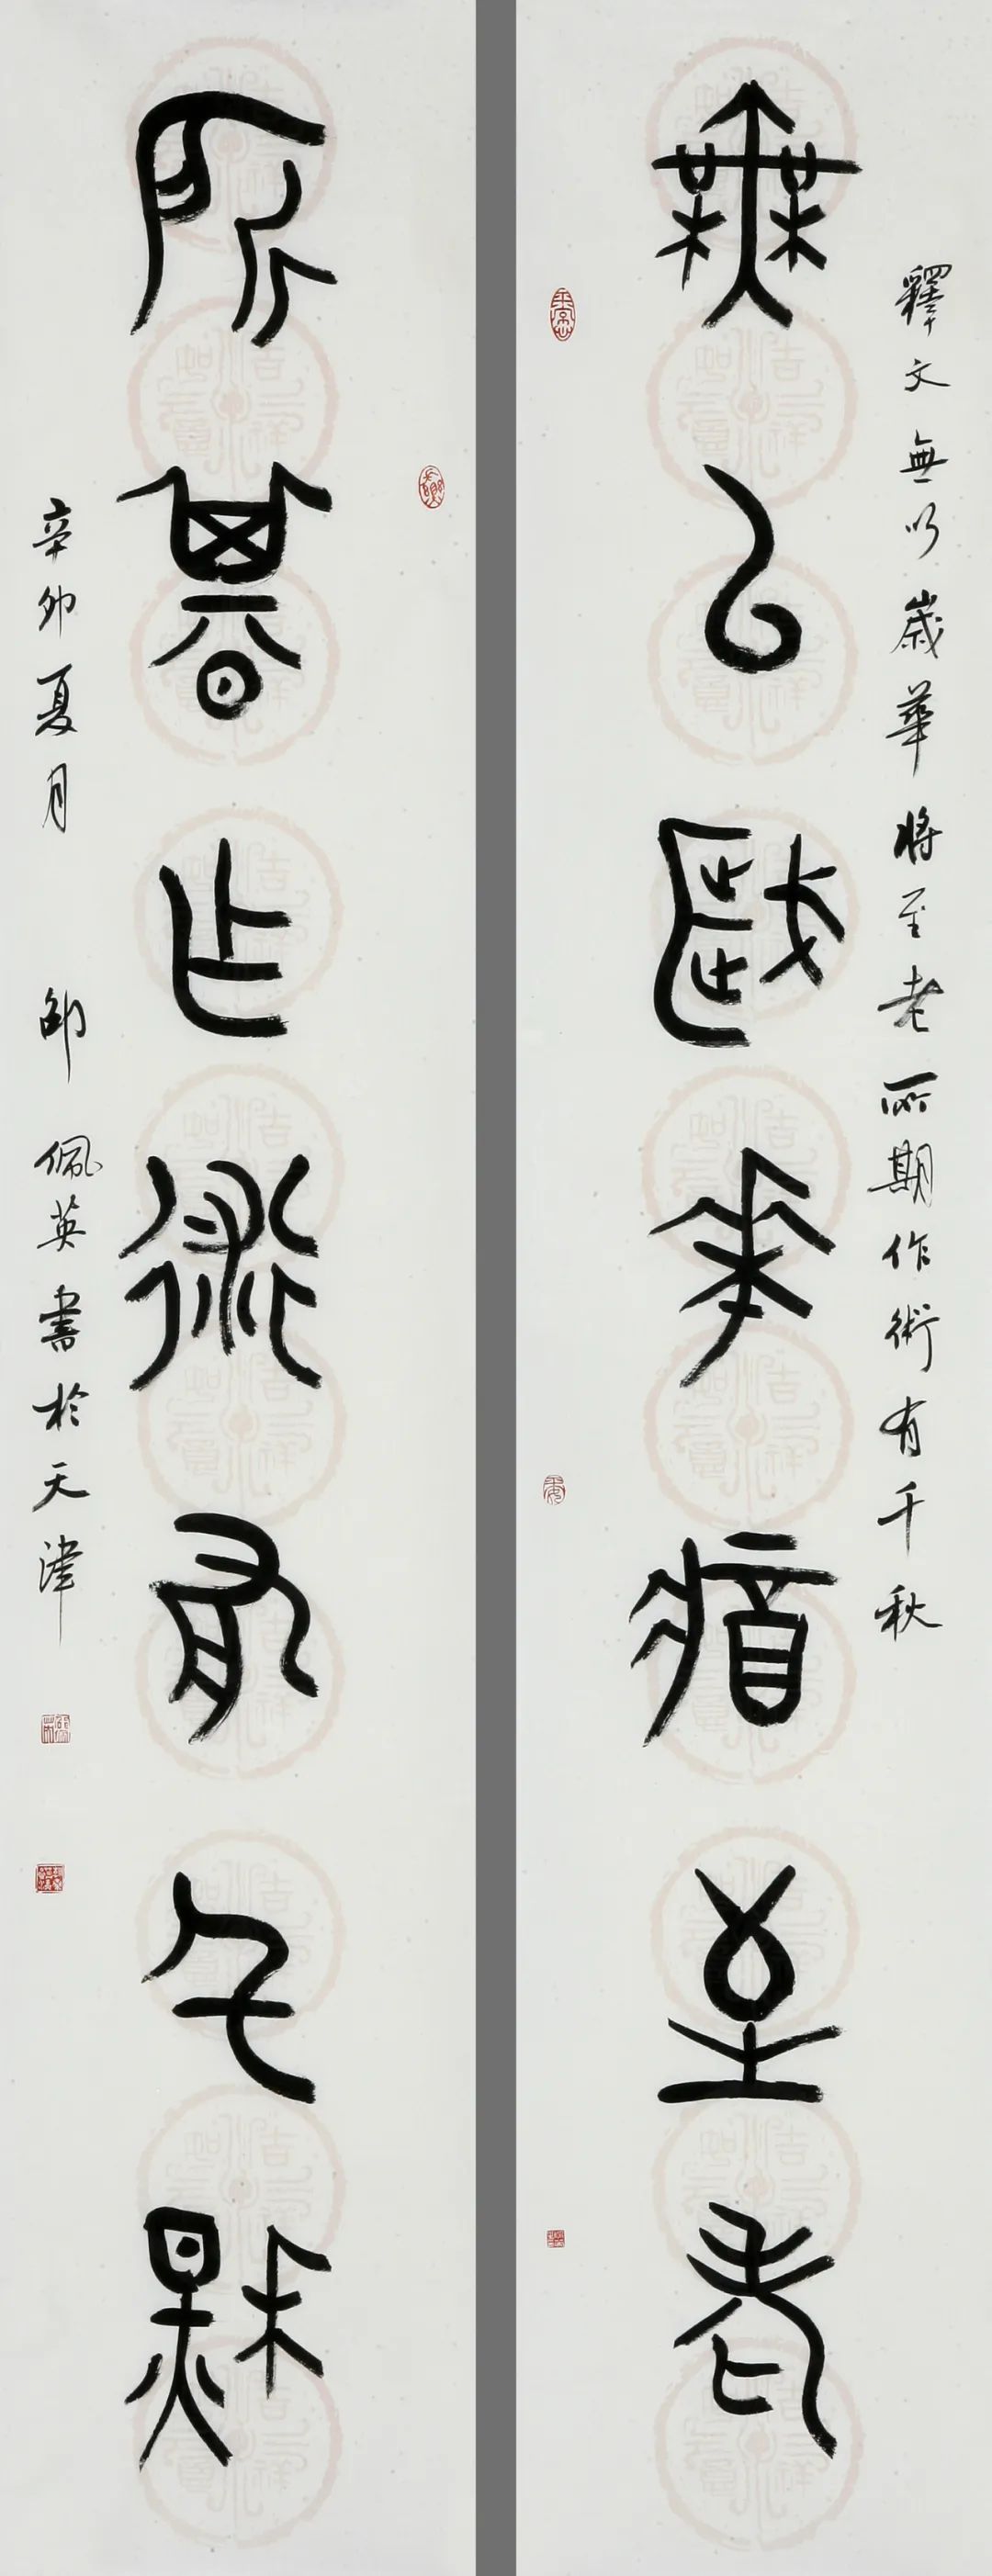 釋文無以歲華將至老所期作術有千秋
無以歲華將至老
所期作術有千秋
辛卯夏月 邵佩英書於天津